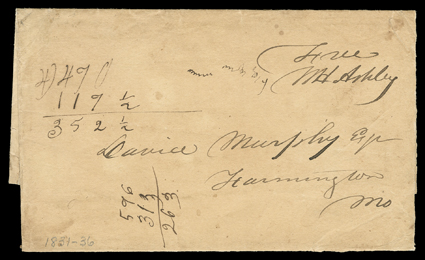 Free
WH Ashley
4)470
117 1/2
352 1/2
David Murphy Esq
Farmington
Mo
596
313
263
1831-36